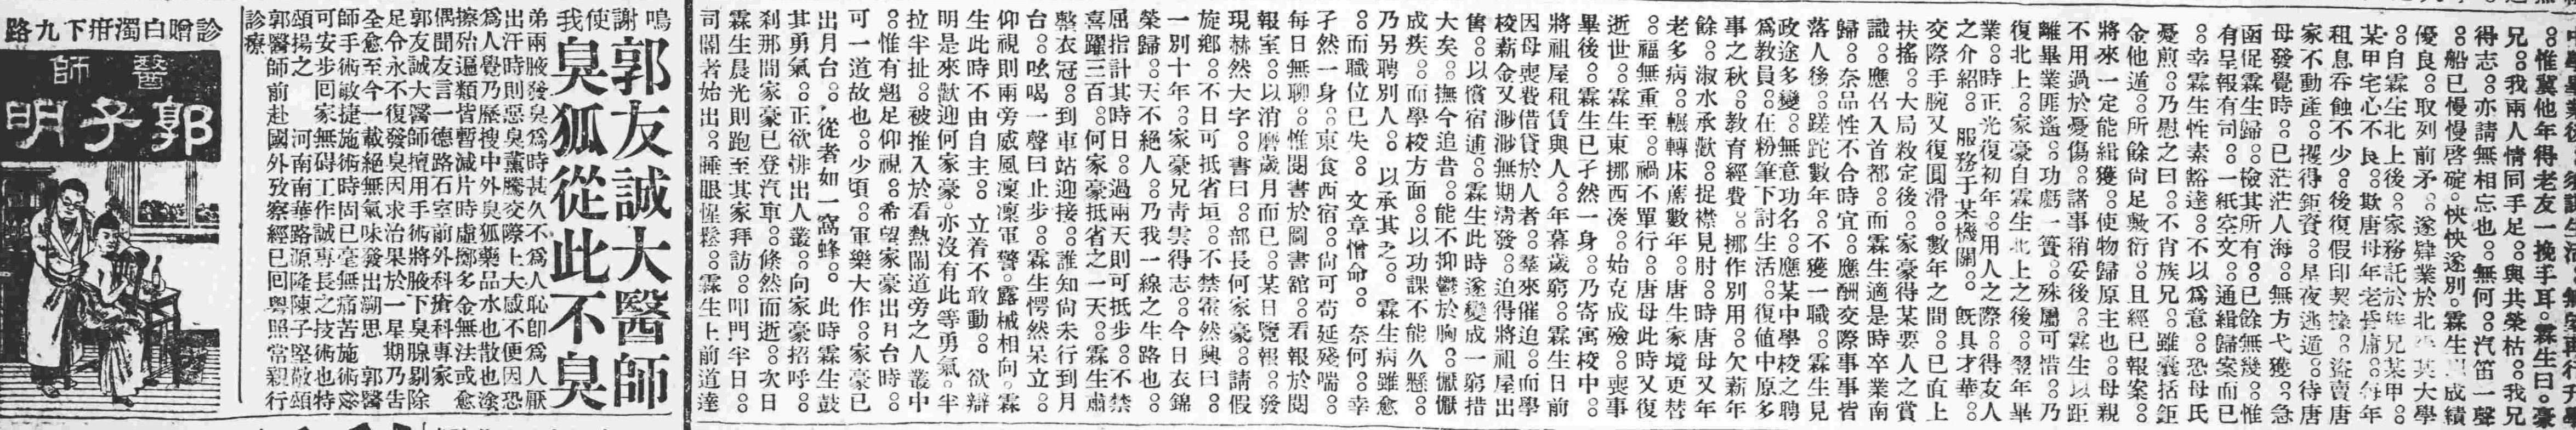 得志。亦請無相忘也。無何。汽笛一聲
。船已慢慢啓碇。怏怏遂別。霖生
優良。取列前矛。遂肄業於北
。白霖生北上後。家務託於
某甲宅心不良。欺唐母年老昏庸。每年
租息吞蝕不少。後復假印契據。盜賣唐
家不動產。攫得鉅資。星夜逃遁。待唐
母發覺時。已茫茫人海。無方弋獲。急
函促霖生歸。檢其所有。已餘無幾。惟
有呈報有司。一紙空文。通緝歸案而已
。幸霖生性素豁達。不以爲意。恐母氏
憂煎。乃慰之曰。不肖族兄。雖囊括鉅
金他遁。所餘尙足敷衍。且經已報案。
將來一定能緝獲。使物歸原主也。母親
不用過於憂傷。諸事稍妥後。霖生以距
離畢業匪遙。功虧一簣。殊屬可惜。乃
復北上。家豪自霖生北上之後。翌年畢
業。時正光復初年。用人之際。得友人
之介紹。服務于某機關。旣具才華。
交際手腕又復圓滑。數年之間。已直上
扶搖。大局敉定後。家豪得某要人之賞
識。應召入首都。而霖生適是時卒業南
歸。奈品性不合時宜。應酬交際事事皆
落人後。蹉跎數年。不獲一職。霖生見
政途多變。無意功名。應某中學校之聘
爲教員。在粉筆下討生活。復值中原多
事之秋。教育經費。挪作別用。欠薪年
餘。淑水承歡。捉襟見肘。時唐母又年
老多病。輾轉床蓆數年。唐生家境更替
。福無重至。禍不單行。唐母此時又復
逝世。霖生東挪西凑。始克成殮。喪事
畢後。霖生已孑然一身。乃寄寓校中。
將祖屋租賃與人。年暮歲窮。霖生日前
因母喪費借貸於人者。羣來催迫。而學
校薪金又渺渺無期淸發。迫得將祖屋出
售。以償宿逋。霖生此時遂變成一窮措
大矣。撫今追昔。能不抑鬱於胸。懨懨
成疾。而學校方面。以功課不能久懸。
乃另聘別人。以承其之。霖生病雖愈
。而職位已失。文章憎命。奈何。幸
孑然一身。東食西宿。尙可苟延殘喘。
每日無聊。惟閱書於圖書舘。看報於閱
報室。以消磨歲月而已。某日覽報。發
現赫然大字。書曰。部長何家豪。請假
旋鄉。不日可抵省垣。不禁霍然興曰。
一別十年。家豪兄靑雲得志。今日衣錦
榮歸。天不絕人。乃我一線之生路也。
屈指計其時日。過兩天則可抵步。不禁
喜躍三百。何家豪抵省之一天。霖生肅
整衣冠。到車站迎接。誰知尙未行到月
台。吆喝一聲曰止步。霖生愕然呆立。
仰視則兩旁威風凜凜軍警露械相向。霖
生此時不由自主。立着不敢動。欲辯
明是來歡迎何家豪。亦沒有此等勇氣。半
拉半扯。被推入於看熱鬧道旁之人叢中
。惟有翹足仰視。希望家豪出月台時。
可一道故也。少頃。軍樂大作。家豪已
出月台。從者如一窩蜂。此時霖生鼓
其勇氣。正欲排出人叢。向家豪招呼。
刹那間家豪已登汽車。倏然而逝。次日
霖生晨光則跑至其家拜訪。叩門半日。
司閽者始出。睡眼惺鬆。霖生上前道達
鳴謝使我
郭友誠大醫師
臭狐從此不臭
弟兩腋發臭爲時甚久不爲人恥卽爲人厭
出汗時則惡臭薰騰交際上大感不便因恐
爲人覺乃歷搜中外臭狐藥品水也散也塗
擦殆遍類皆暫減片時虛擲多金無法或愈
偶聞友言一德路石室前外科瘡科專家
郭友誠大醫師擅用手術將腋下臭腺剔除
足令永不復發臭因求治果於一星期乃告
全愈至今一載絕無氣味發出謝思 郭醫
師手術敏捷施術時固已毫無痛苦施術後
可安步回家無碍工作誠專長之技術也特
頌揚之 河南南華路源隆陳子堅敬頌
郭醫師前赴國外攷察經已回粵照常親行
診療
診贈白濁疳下九路
醫師
郭子明